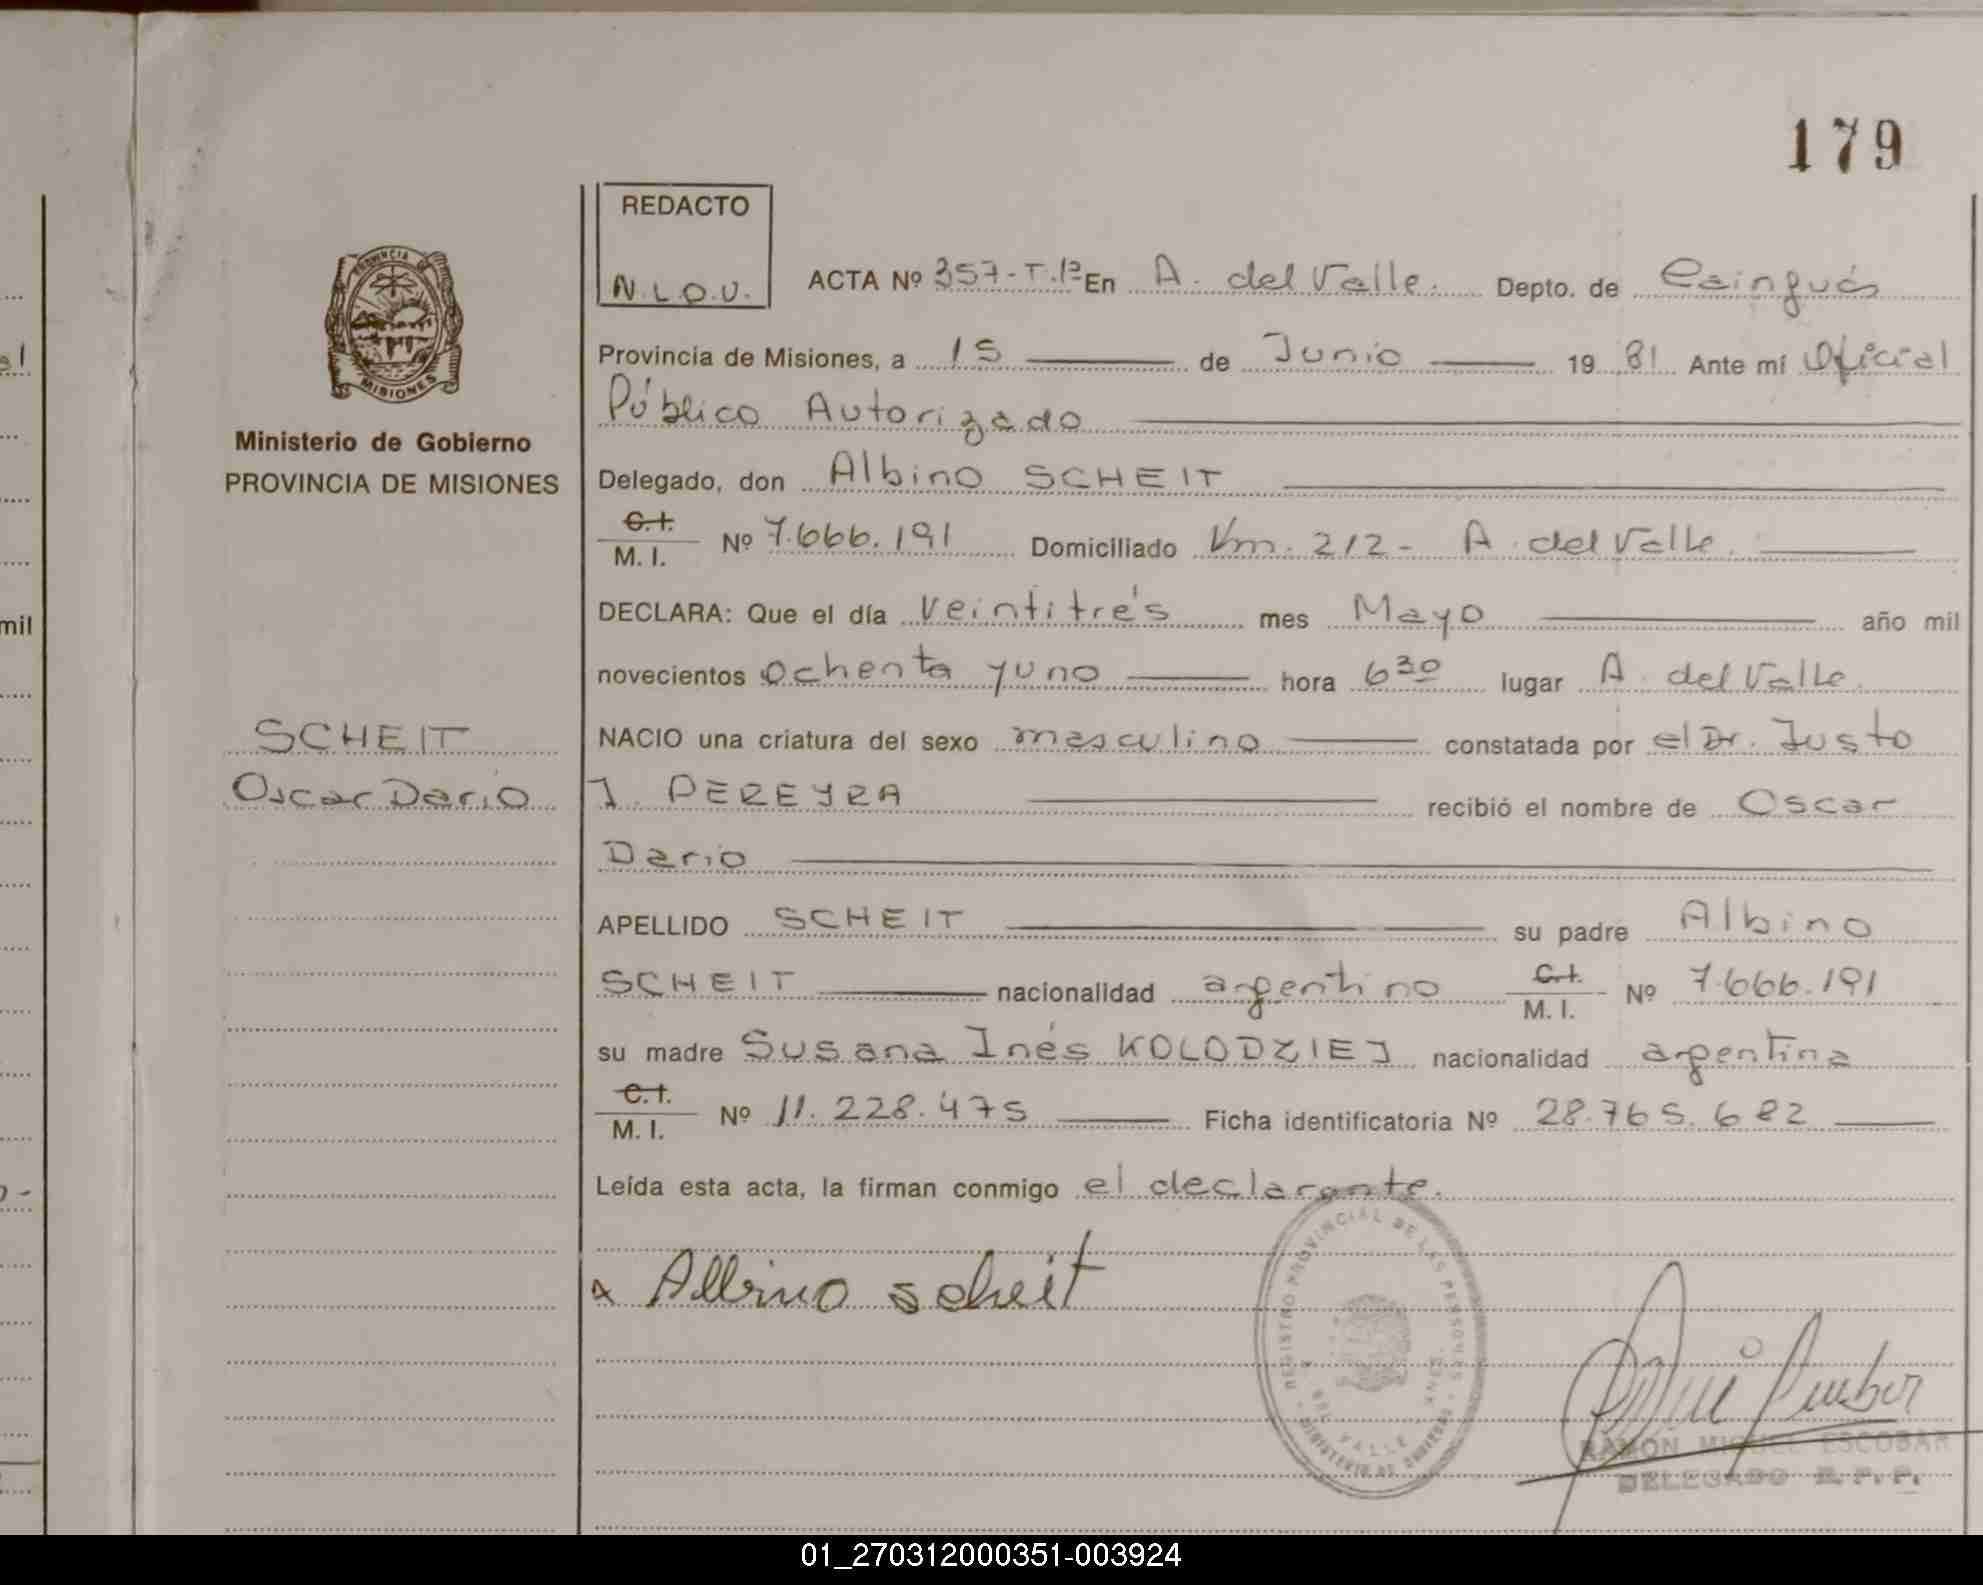 179
REDACTO
N.L.O.V.
ACTA Nº 357-T.1º En A. del Valle. Depto. de Cainguás
Provincia de Misiones, a 15 de Junio 1981 Ante mí Oficial
Público Autorizado
Delegado, don Albino SCHEIT
C.I.
M. I. Nº 7.666.191 Domiciliado Km. 212- A. del Valle.
DECLARA: Que el día veintitrés mes Mayo año mil
novecientos ochenta y uno hora 6 30 lugar A. del Valle.
NACIO una criatura del sexo masculino constatada por el Dr. Justo
J. PEREYRA recibió el nombre de Oscar
Dario
APELLIDO SCHEIT su padre Albino
SCHEIT nacionalidad argentino C.I.
M. I. Nº 7.666.191
su madre Susana Inés KOLODZIEJ nacionalidad argentina
C.I.
M. I. Nº 11.228.475 Ficha identificatoria Nº 28.765.682
Leída esta acta, la firman conmigo el declarante.
Albino scheit
PROVINCIA DE
MISIONES
Ministerio de Gobierno
PROVINCIA DE MISIONES
SCHEIT
Oscar Dario
REGISTRO PROVINCIAL DE LAS PERSONAS
DEL VALLE
MINISTERIO DE GOBIERNO
RAMON MIGUEL ESCOBAR
DELEGADO R. P. P.
mil
01_270312000351-003924